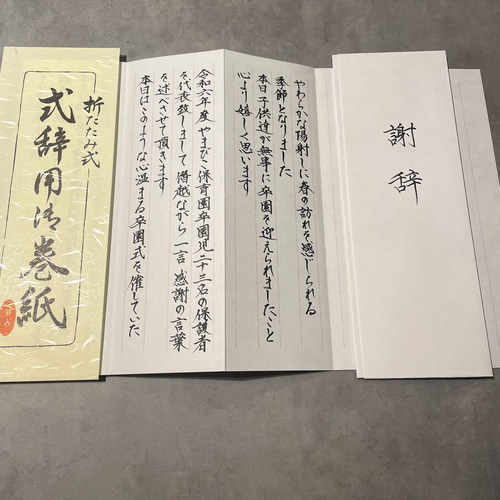 謝辞
やわらかな陽射しに春の訪れを感じられる
季節となりました
本日子供達が無事に卒園を迎えられましたこと
心より嬉しく思います
令和六年度 やまびこ保育園卒園児二十三名の保護者
を代表致しまして僭越ながら一言 感謝の言葉
を述べさせて頂きます
本日はこのような心温まる卒園式を催していた
折たたみ式
式辞用御巻紙